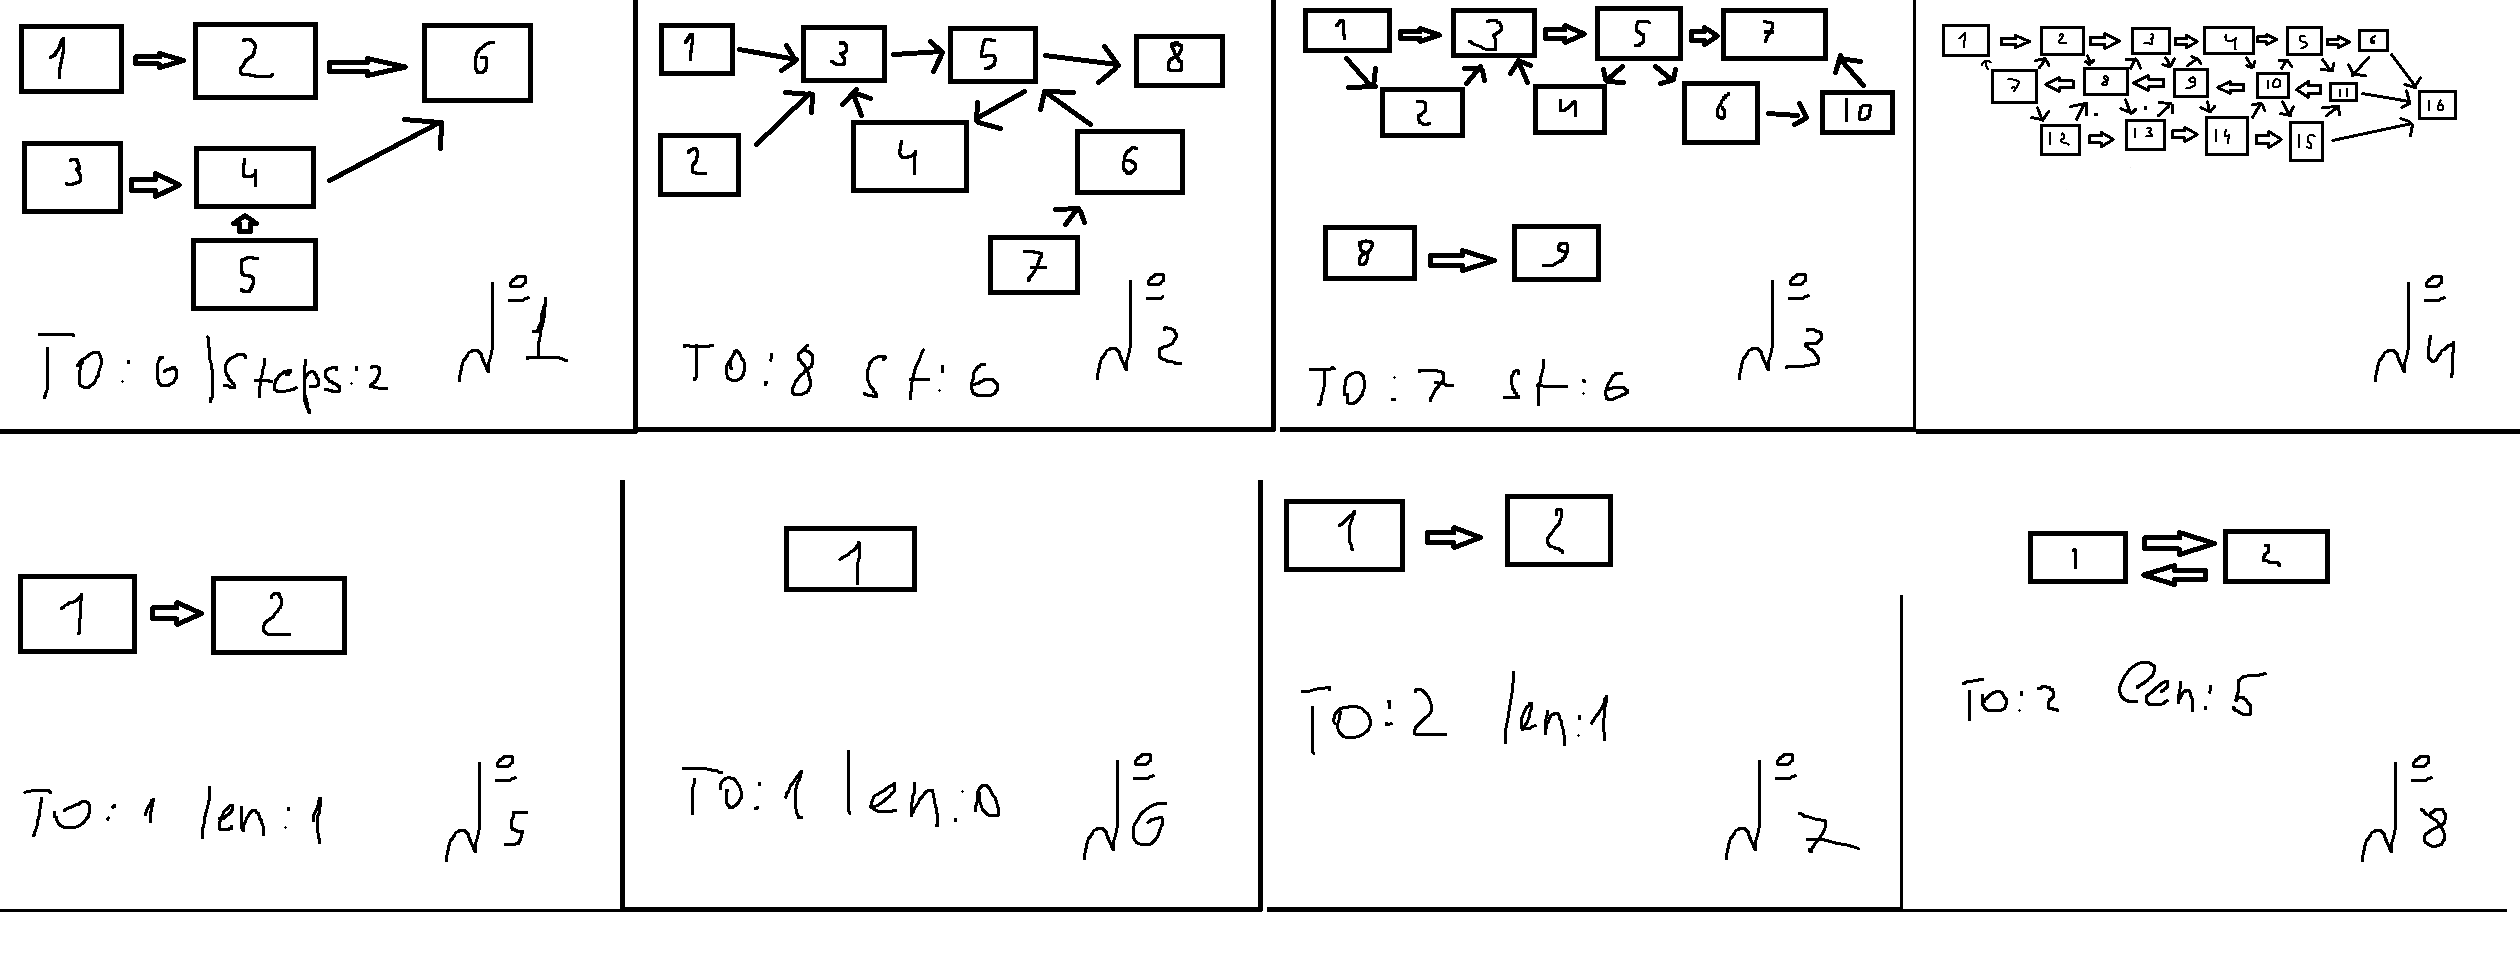 1 2 6
3 4
5
TO: 6 | Steps: 2
№ 1
1 3 5 8
2 4 6
7
TO: 8 St: 6
№ 2
1 3 5 7
2 4 6 10
8 9
TO: 7 St: 6
№ 3
1 2 3 4 5 6
7 8 9 10 11
16
12 13 14 15
№ 4
1 2
TO: 1 len: 1
№ 5
1
TO: 1 len: 0
№ 6
1 2
TO: 2 len: 1
№ 7
1 2
TO: 2 len: 5
№ 8